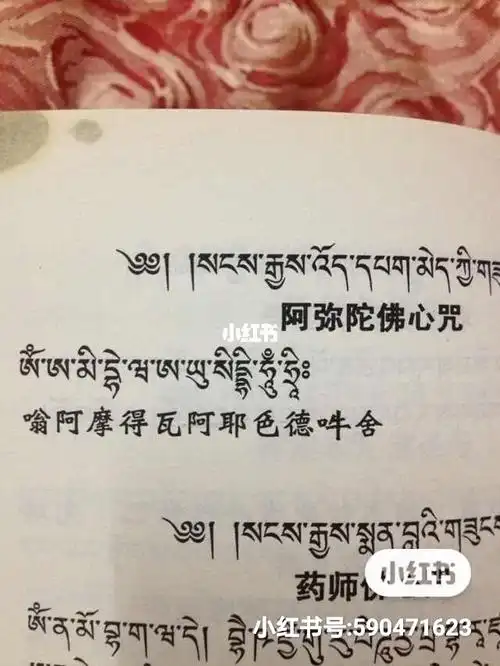 ༄༅། །སངས་རྒྱས་འོད་དཔག་མེད་ཀྱི་གཟུ
阿弥陀佛心咒
小红书
ༀ་ཨ་མི་དྷེ་ཝ་ཨ་ཡུ་སིདྡྷི་ཧཱུྃ་ཧྲཱིཿ
嗡阿摩得瓦阿耶色德吽舍
༄༅། །སངས་རྒྱས་སྨན་བླའི་གཟུངས
药师佛
小红书
ༀ་ན་མོ་བྷ་ག་ཝ་དེ།
小红书号:590471623